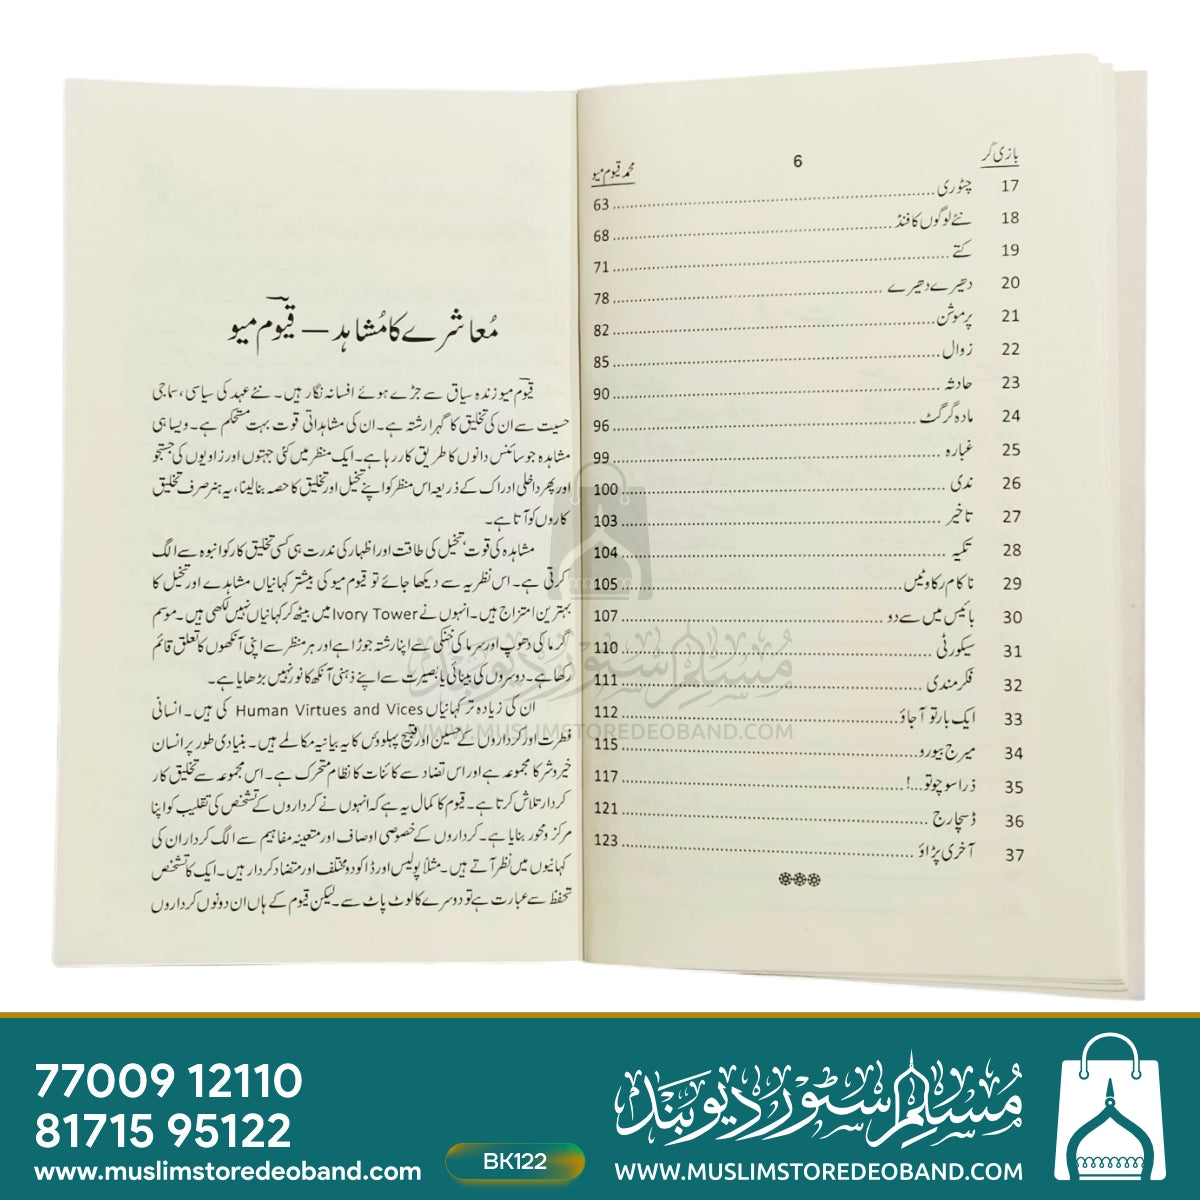 بازی گر 6 محمد قیوم میو
17 چٹوری 63
18 نئے لوگوں کا فنڈ 68
19 کتے 71
20 دھیرے دھیرے 78
21 پرموشن 82
22 زوال 85
23 حادثہ 90
24 مادہ گرگٹ 96
25 غبارہ 99
26 ندی 100
27 تاخیر 103
28 تکیہ 104
29 ناکام رکاوٹیں 105
30 بائیس میں سے دو 107
31 سیکورٹی 110
32 فکرمندی 111
33 ایک بار تو آجاؤ 112
34 میرج بیورو 115
35 ذرا سوچو تو...! 117
36 ڈسچارج 121
37 آخری پڑاؤ 123
مُعاشرے کا مُشاہد — قیوم میو
قیوم میو زندہ سیاق سے جڑے ہوئے افسانہ نگار ہیں۔ نئے عہد کی سیاسی، سماجی
حسیت سے ان کی تخلیق کا گہرا رشتہ ہے۔ ان کی مشاہداتی قوت بہت مستحکم ہے۔ ویسا ہی
مشاہدہ جو سائنس دانوں کا طریق کار رہا ہے۔ ایک منظر میں کئی جہتوں اور زاویوں کی جستجو
اور پھر داخلی ادراک کے ذریعہ اس منظر کو اپنے تخیل اور تخلیق کا حصہ بنا لینا، یہ ہنر صرف تخلیق
کاروں کو آتا ہے۔
مشاہدہ کی قوت، تخیل کی طاقت اور اظہار کی ندرت ہی کسی تخلیق کار کو انبوہ سے الگ
کرتی ہے۔ اس نظریہ سے دیکھا جائے تو قیوم میو کی بیشتر کہانیاں مشاہدے اور تخیل کا
بہترین امتزاج ہیں۔ انہوں نے Ivory Tower میں بیٹھ کر کہانیاں نہیں لکھی ہیں۔ موسم
گرما کی دھوپ اور سرما کی خنکی سے اپنا رشتہ جوڑا ہے اور ہر منظر سے اپنی آنکھوں کا تعلق قائم
رکھا ہے۔ دوسروں کی بینائی یا بصیرت سے اپنے ذہنی آنکھ کا نور نہیں بڑھایا ہے۔
ان کی زیادہ تر کہانیاں Human Virtues and Vices کی ہیں۔ انسانی
فطرت اور کرداروں کے حسین اور قبیح پہلوؤں کا یہ بیانیہ مکالمے ہیں۔ بنیادی طور پر انسان
خیر و شر کا مجموعہ ہے اور اس تضاد سے کائنات کا نظام متحرک ہے۔ اس مجموعہ سے تخلیق کار
کردار تلاش کرتا ہے۔ قیوم کا کمال یہ ہے کہ انہوں نے کرداروں کے تشخص کی تقلیب کو اپنا
مرکز و محور بنایا ہے۔ کرداروں کے خصوصی اوصاف اور متعینہ مفاہیم سے الگ کردار ان کی
کہانیوں میں نظر آتے ہیں۔ مثلاً پولیس اور ڈاکو دو مختلف اور متضاد کردار ہیں۔ ایک کا تشخص
تحفظ سے عبارت ہے تو دوسرے کا لوٹ پاٹ سے۔ لیکن قیوم کے ہاں ان دونوں کرداروں
مُسلِم سٹور دیوبند
WWW.MUSLIMSTOREDEOBAND.COM
77009 12110
81715 95122
www.muslimstoredeoband.com
BK122
مُسلِم سٹور دیوبند
WWW.MUSLIMSTOREDEOBAND.COM